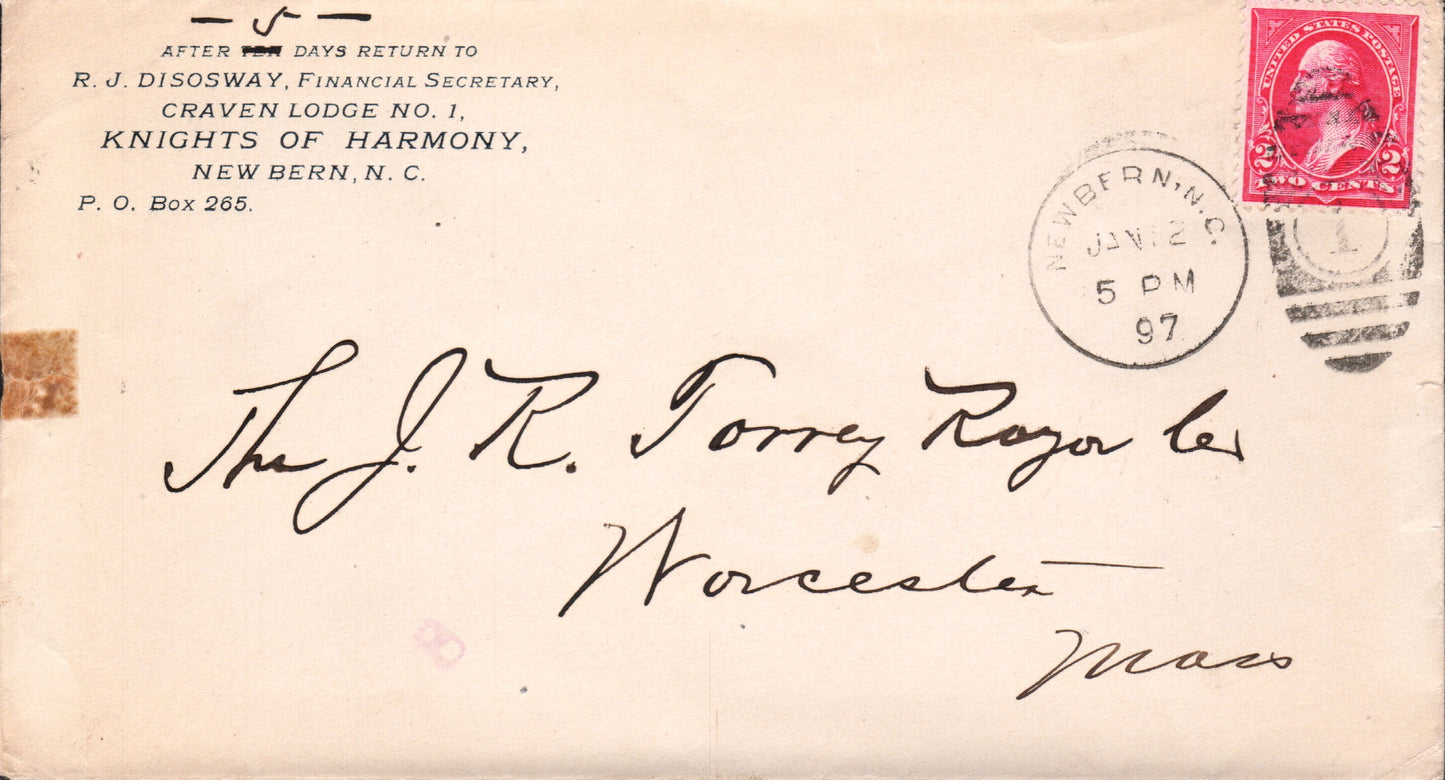 — 5 —
AFTER TEN DAYS RETURN TO
R. J. DISOSWAY, FINANCIAL SECRETARY,
CRAVEN LODGE NO. 1,
KNIGHTS OF HARMONY,
NEW BERN, N. C.
P. O. Box 265.
UNITED STATES POSTAGE
2 2
TWO CENTS
NEWBERN, N.C.
JAN 12
5 PM
97
1
The J. R. Torrey Razor Co
Worcester
Mass